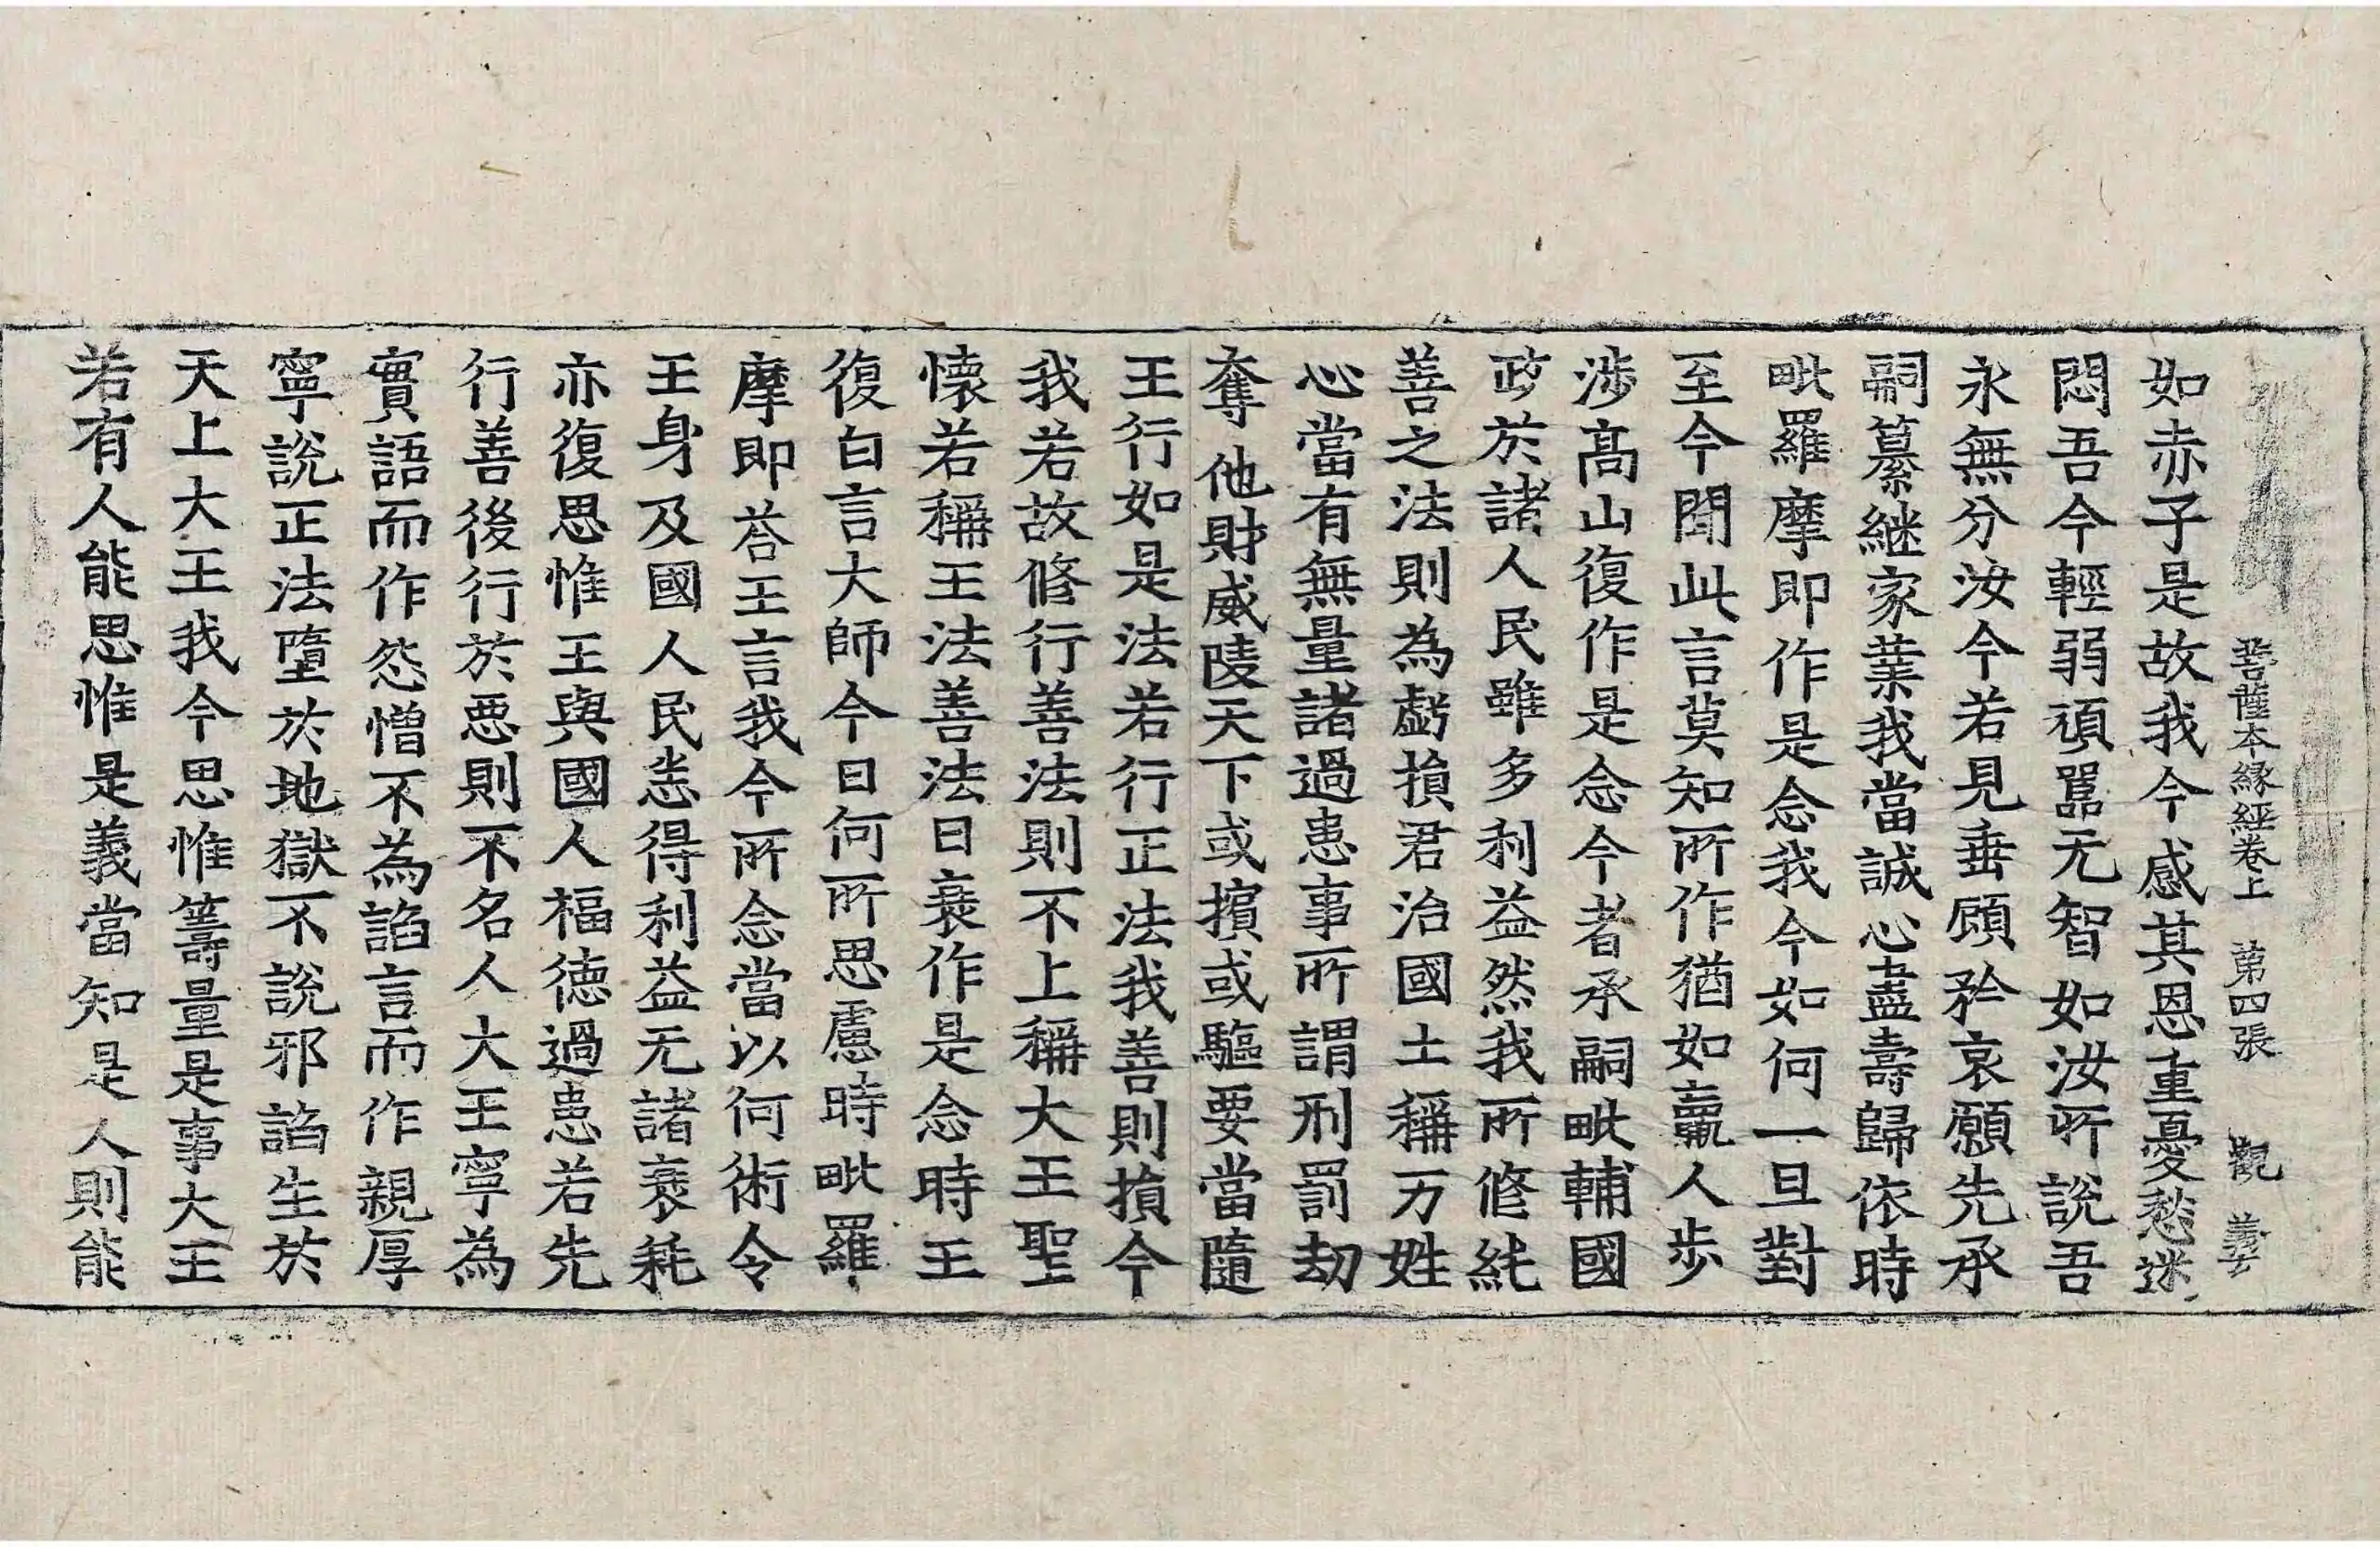 菩薩本縁經卷上　第四張　觀
如赤子是故我今感其恩重憂愁迷
悶吾今輕弱頑嚚无智如汝所說吾
永無分汝今若見垂顧矜哀願先承
嗣纂継家業我當誠心盡壽歸依時
毗羅摩即作是念我今如何一旦對
至今聞此言莫知所作猶如羸人步
涉髙山復作是念今者承嗣毗輔國
政於諸人民雖多利益然我所修純
善之法則為虧損君治國土稱万姓
心當有無量諸過患事所謂刑罰劫
奪他財威陵天下或擯或驅要當隨
王行如是法若行正法我善則損今
我若故修行善法則不上稱大王聖
懷若稱王法善法日衰作是念時王
復白言大師今日何所思慮時毗羅
摩即荅王言我今所念當以何術令
王身及國人民悉得利益无諸衰耗
亦復思惟王與國人福德過患若先
行善後行於惡則不名人大王寧為
實語而作怨憎不為諂言而作親厚
寧說正法墮於地獄不說邪諂生於
天上大王我今思惟籌量是事大王
若有人能思惟是義當知是人則能